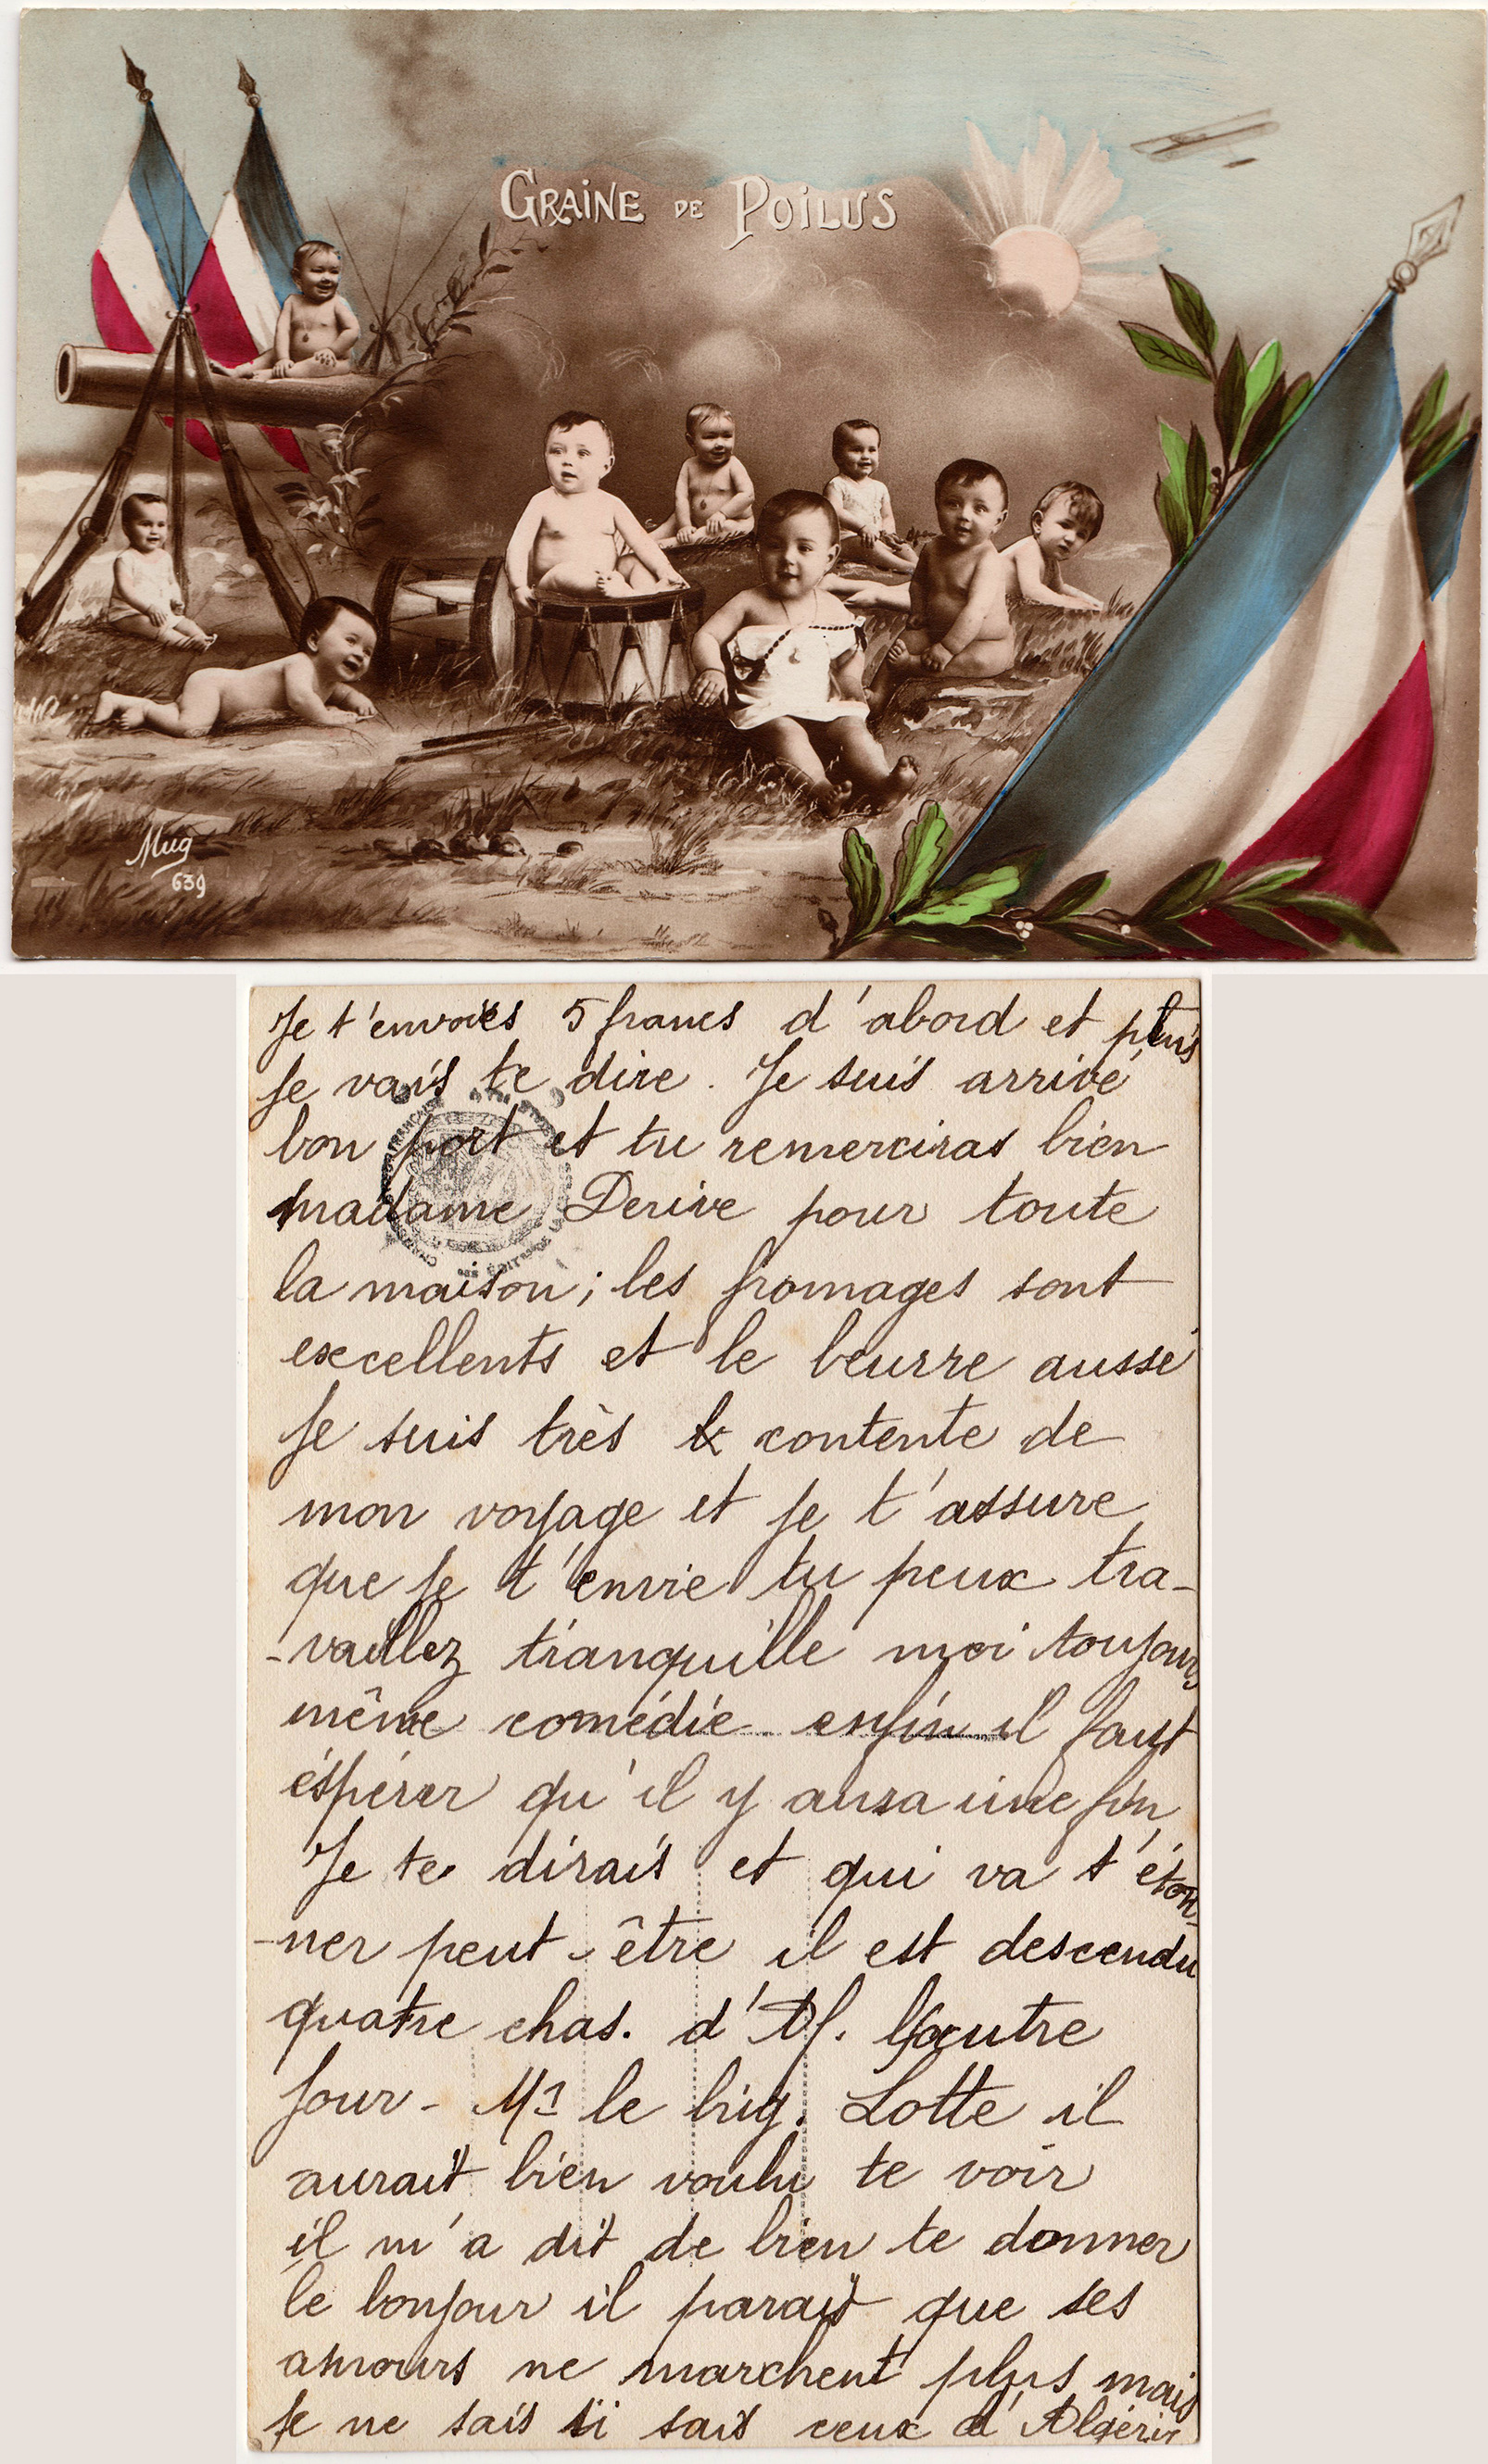 GRAINE DE POILUS
Mug
639
Je t'envoies 5 francs d'abord et puis
je vais te dire. Je suis arrivé
bon port et tu remerciras bien
madame Derive pour toute
la maison; les fromages sont
excellents et le beurre aussi
je suis très contente de
mon voyage et je t'assure
que je t'envie tu peux tra-
-vaillez tranquille moi toujours
même comédie enfin il faut
éspérer qu'il y aura une fin
Je te dirais et qui va t'éton-
-ner peut-être il est descendu
quatre chas. d'Af. l'autre
jour - Mr le brig. Lotte il
aurait bien voulu te voir
il m'a dit de bien te donner
le bonjour il parait que ses
amours ne marchent plus mais
je ne sais si sait ceux d'Algérie